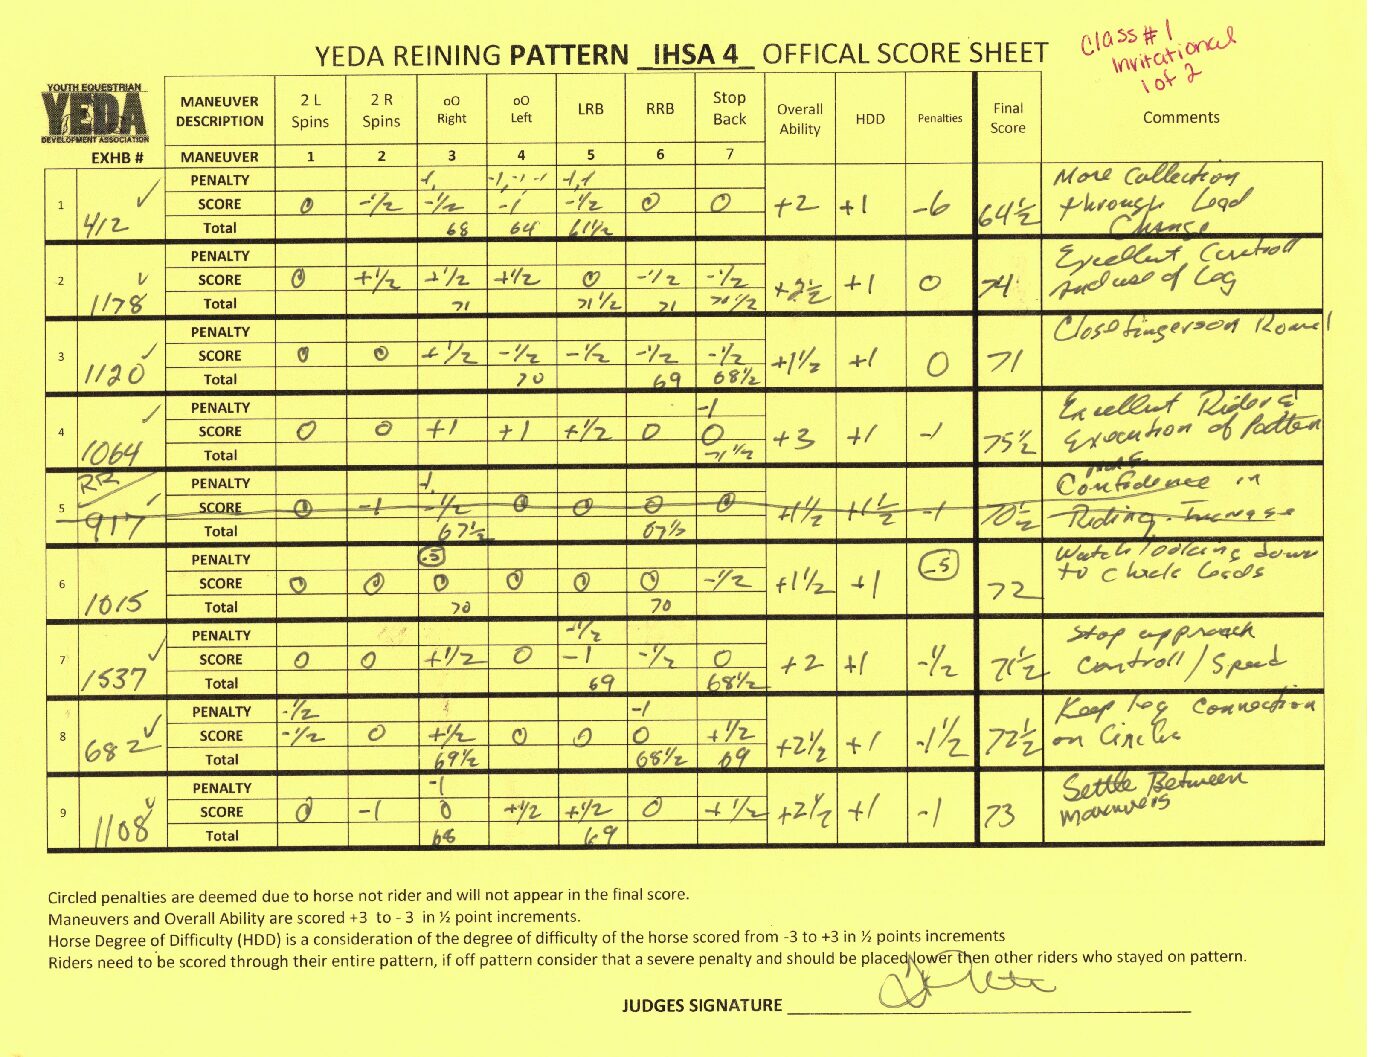 Class #1
Invitational
1 of 2
YEDA REINING PATTERN IHSA 4 OFFICAL SCORE SHEET
YOUTH EQUESTRIAN
YEDA
DEVELOPMENT ASSOCIATION
EXHB #
MANEUVER DESCRIPTION 2 L Spins 2 R Spins oO Right oO Left LRB RRB Stop Back Overall Ability HDD Penalties Final Score Comments
MANEUVER 1 2 3 4 5 6 7
1 412 ✓ PENALTY -1, -1, -1 -1 -1, -1 More Collection
SCORE 0 -1/2 -1/2 -1 -1/2 0 0 +2 +1 -6 64 1/2 through Lead
Total 68 64 61 1/2 Change
2 1178 ✓ PENALTY Excellent Controll
SCORE 0 +1/2 +1/2 +1/2 0 -1/2 -1/2 +2 1/2 +1 0 74 and use of Leg
Total 71 71 1/2 71 70 1/2
3 1120 ✓ PENALTY Close fingers on Romel
SCORE 0 0 +1/2 -1/2 -1/2 -1/2 -1/2 +1 1/2 +1 0 71
Total 70 69 68 1/2
4 1064 ✓ PENALTY -1 Excellent Rider &
SCORE 0 0 +1 +1 +1/2 0 0 +3 +1 -1 75 1/2 Execution of Pattern
Total 71 1/2
RR
5 917 ✓ PENALTY -1, Confidence in
SCORE 0 -1 -1/2 0 0 0 0 +1 1/2 +1 1/2 -1 70 1/2 Riding. Increase
Total 67 1/2 67 1/2
6 1015 PENALTY .5 Watch looking down
SCORE 0 0 0 0 0 0 -1/2 +1 1/2 +1 -.5 72 to check Leads
Total 70 70
7 1537 ✓ PENALTY -1/2 Stop approach
SCORE 0 0 +1/2 0 -1 -1/2 0 +2 +1 -1/2 71 1/2 Controll / Speed
Total 69 68 1/2
8 682 ✓ PENALTY -1/2 -1 Keep Leg Connection
SCORE -1/2 0 +1/2 0 0 0 +1/2 +2 1/2 +1 -1 1/2 72 1/2 on Circles
Total 69 1/2 68 1/2 69
9 1108 ✓ PENALTY -1 Settle Between
SCORE 0 -1 0 +1/2 +1/2 0 +1/2 +2 1/2 +1 -1 73 maneuvers
Total 68 69
Circled penalties are deemed due to horse not rider and will not appear in the final score.
Maneuvers and Overall Ability are scored +3 to - 3 in ½ point increments.
Horse Degree of Difficulty (HDD) is a consideration of the degree of difficulty of the horse scored from -3 to +3 in ½ points increments
Riders need to be scored through their entire pattern, if off pattern consider that a severe penalty and should be placed lower then other riders who stayed on pattern.
JUDGES SIGNATURE